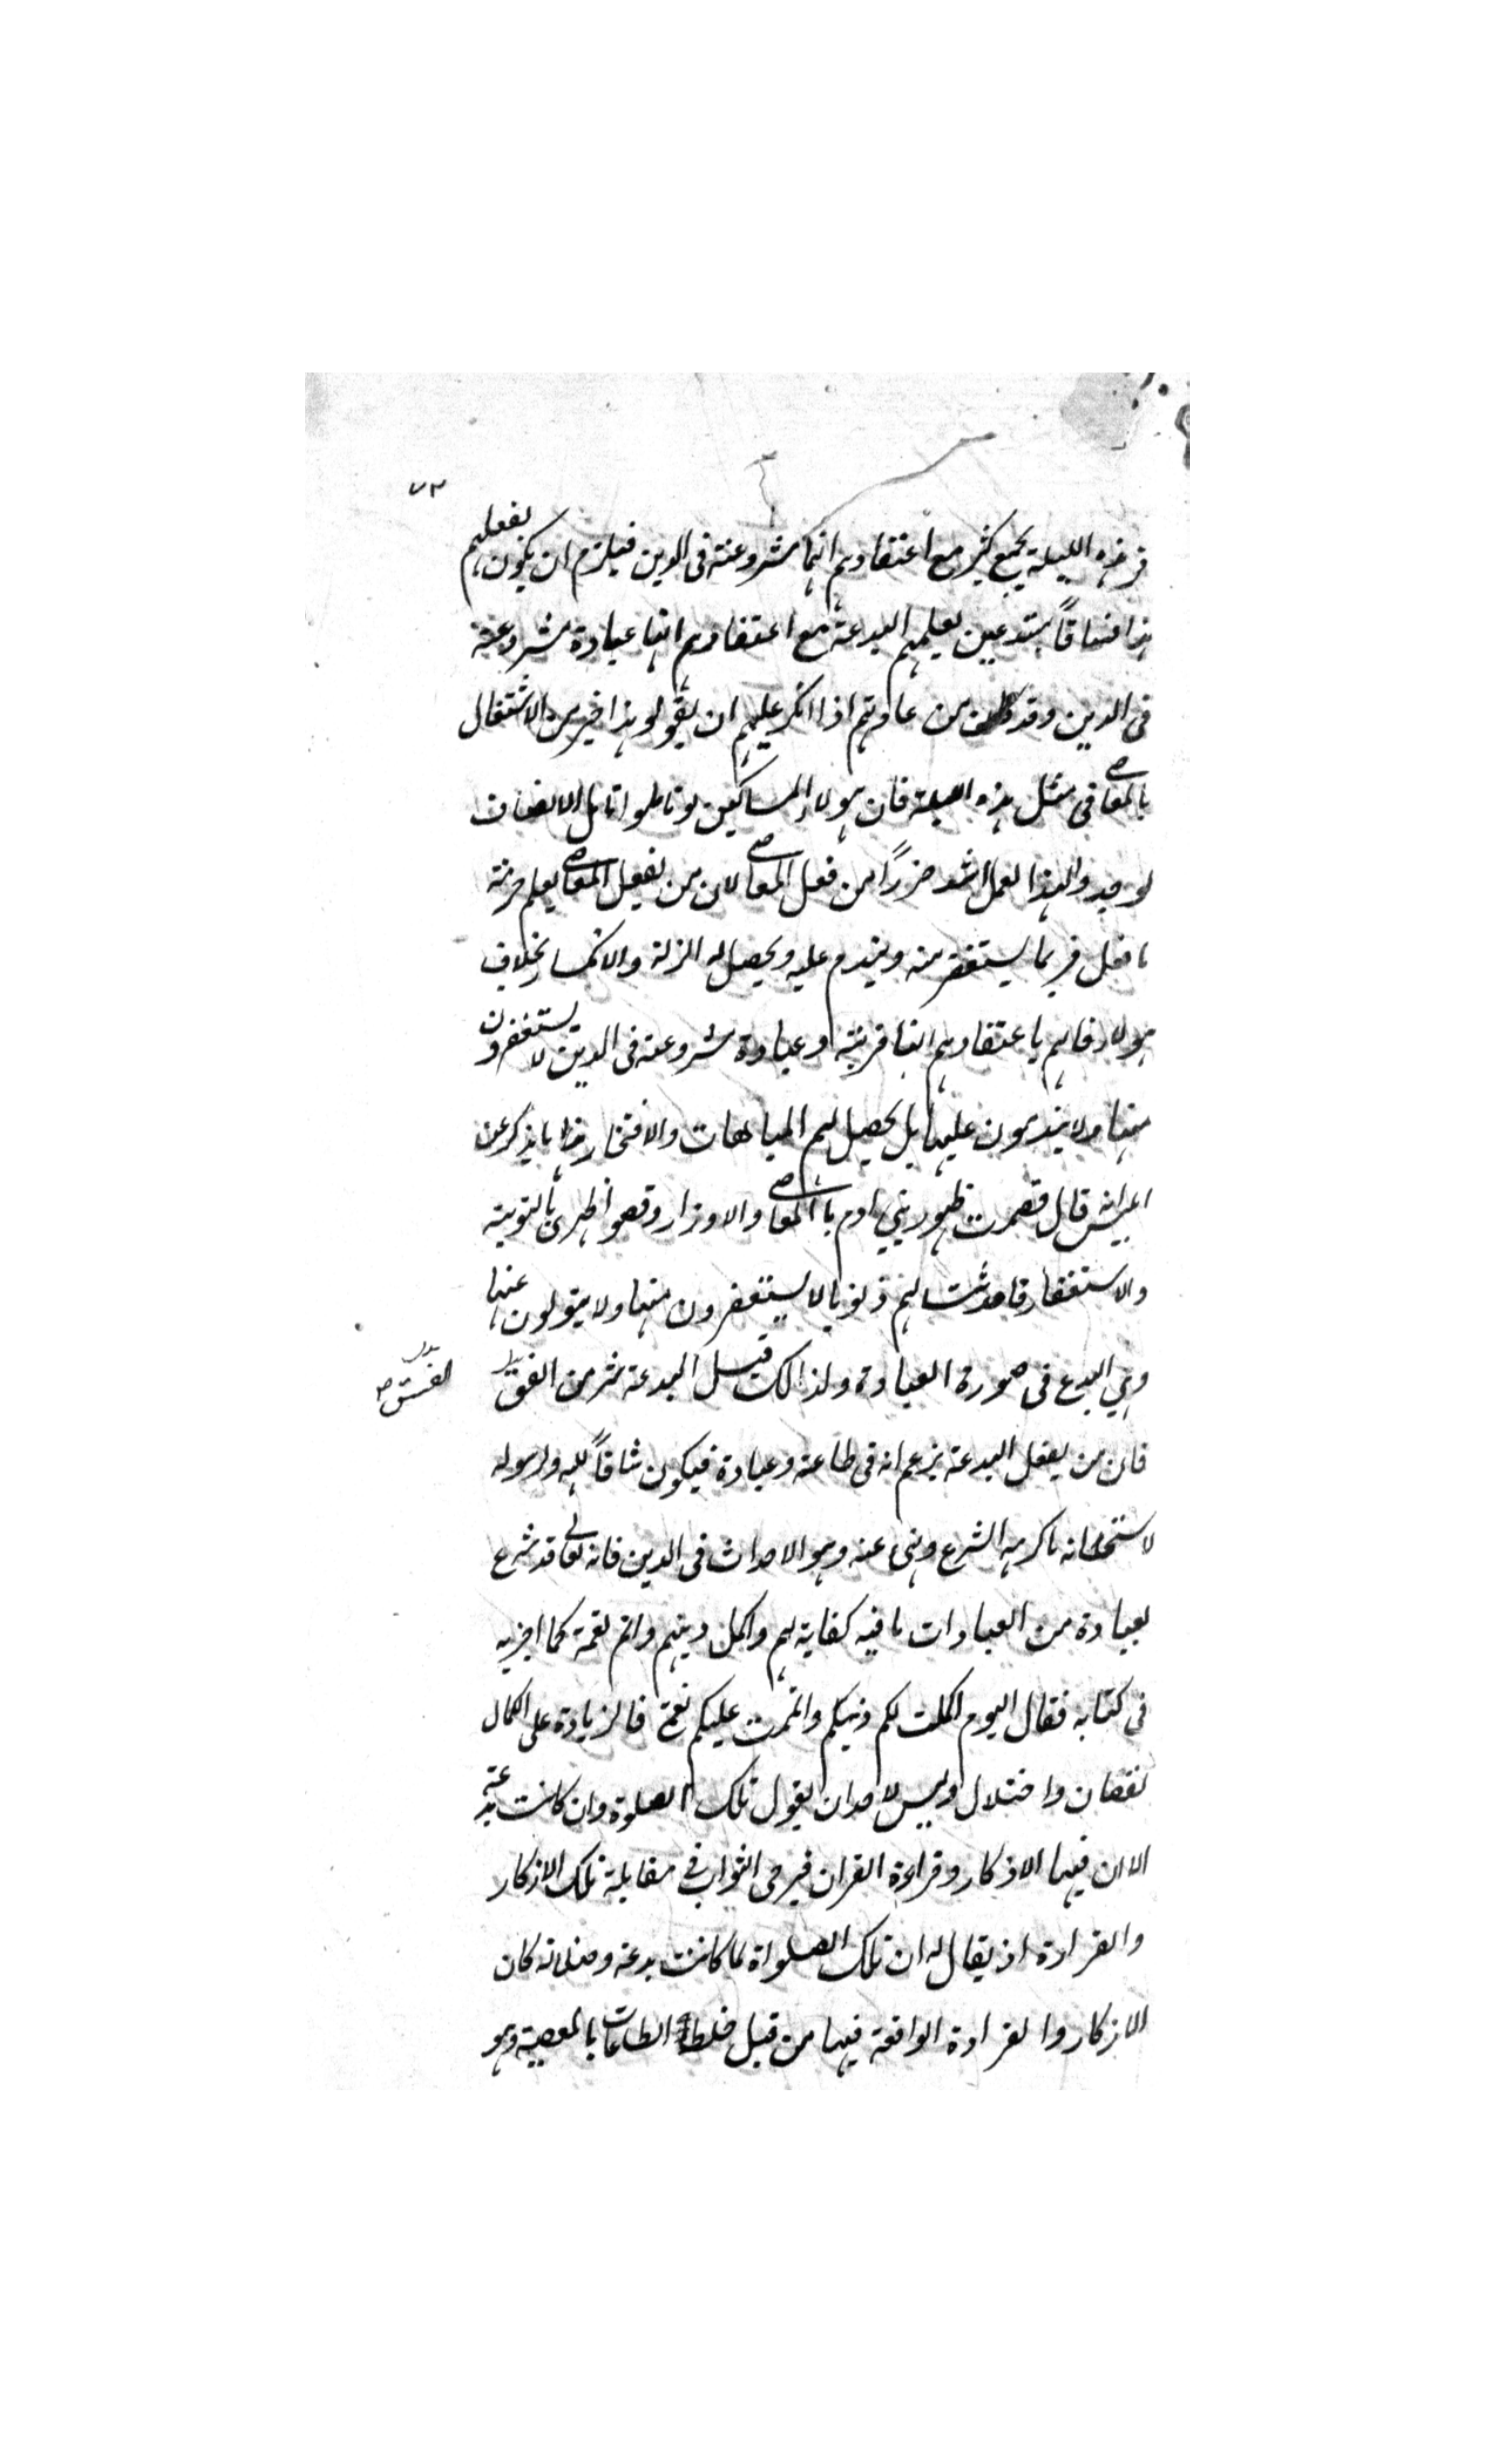 ٧٣
فى هذه الليلة بجمع كثير مع اعتقادهم انها مشروعة فى الدين فيلزم ان يكون بفعلهم
هذا فساقاً مبتدعين بعلمهم البدعة مع اعتقادهم انها عبادة مشروعة
فى الدين وقد كان من عادتهم اذا انكر عليهم ان يقولو هذا خير من الاشتغال
بالمعاصى فى مثل هذه الليلة فان هولاء المساكين لو تاملوا تامل الانصاف
لوجدوا هذا العمل اشد ضررًا من فعل المعاصى لان من يفعل المعاصى يعلم حرمة
ما فعل فربما يستغفر منه ويندم عليه ويحصل له الذلة والانكسار بخلاف
هولاء فانهم باعتقادهم انها قربة وعبادة مشروعة فى الدين لا يستغفرون
منها ولا يندمون عليها بل يحصل لهم المباهات والافتخار بها يذكر عن
ابليس قال قصمت ظهور بني ادم بالمعاصى والاوزار وقصموا ظهرى بالتوبة
والاستغفار فاحدثت لهم ذنوبا لا يستغفرون منها ولا يتوبون عنها
وهي البدع فى صورة العبادة ولذالك قيل البدعة شر من الفسق
الفسق
فان من يفعل البدعة يزعم انه فى طاعة وعبادة فيكون شاقاً لله ولرسوله
لاستحسانه ما كرهه الشرع ونهى عنه وهو الاحداث فى الدين فانه تعالى قد شرع
لعباده من العبادات ما فيه كفاية لهم واكمل دينهم واتم نعمة كما اخبر به
فى كتابه فقال اليوم اكملت لكم دينكم واتممت عليكم نعمتى فالزيادة على الكمال
نقصان واختلال وليس لاحد ان يقول تلك الصلوة وان كانت بدعة
الا ان فيها الاذكار وقراءة القران فيرجى الثواب فى مقابلة تلك الاذكار
والقراءة اذ يقال له ان تلك الصلواة لما كانت بدعة وضلالة كان
الاذكار والقراءة الواقعة فيها من قبيل خلط الطاعات بالمعصية وهو